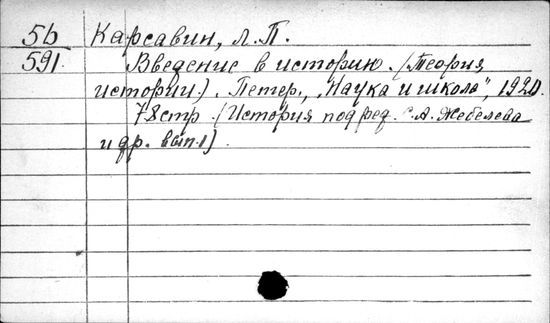 5б Карсавин, Л.П.
591. Введение в историю. (Теория
истории). Петер., „Наука и школа", 1920.
78стр. (История под ред. С.А. Жебелева
и др. вып.1)